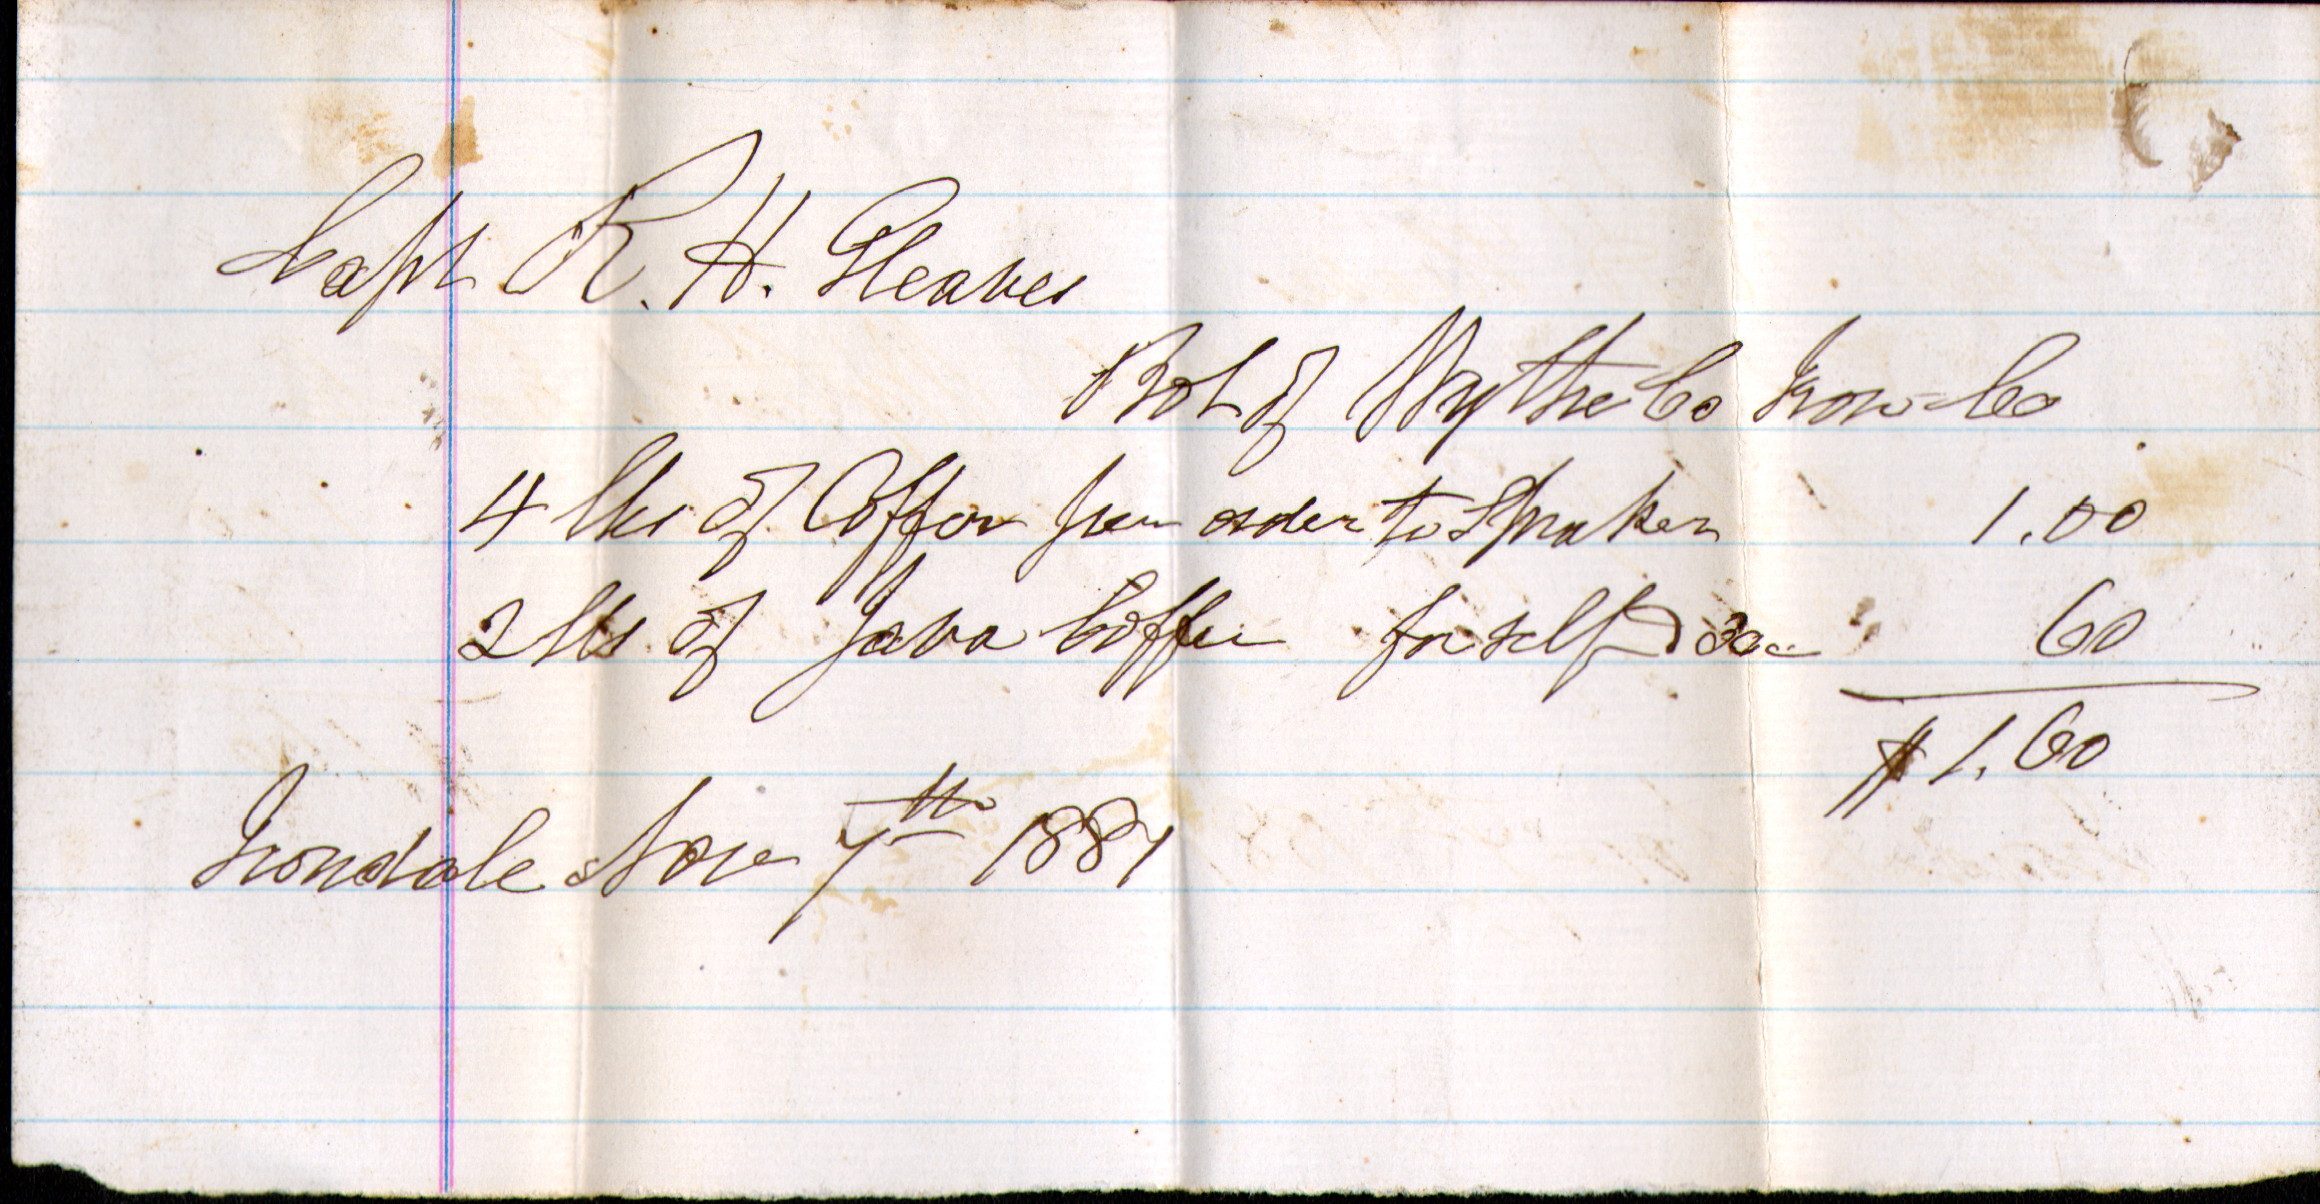 Capt R. H. Gleaves
Bot of Wythe Co Iron Co
4 lbs of Coffee per order to Spraker 1.00
2 lbs of Java Coffee for self @ 30c 60
$ 1.60
Irondale Nov 7th 1881